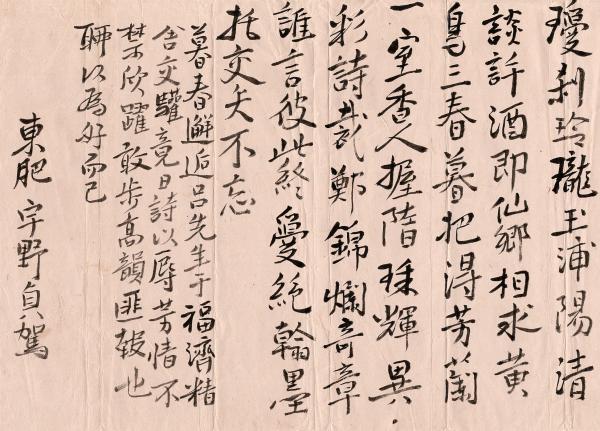 瓊刹玲瓏玉浦陽清
談許酒即仙鄉相求黃
鳥三春暮把得芳蘭
一室香人握隋珠輝異
彩詩裁鄭錦爛奇章
誰言彼此終憂絕翰墨
托交矢不忘
暮春邂逅呂先生于福濟精
舍交驩竟日詩以辱芳情不
禁欣躍敢步高韻匪報也
聊以為好而已
東肥 宇野貞駕